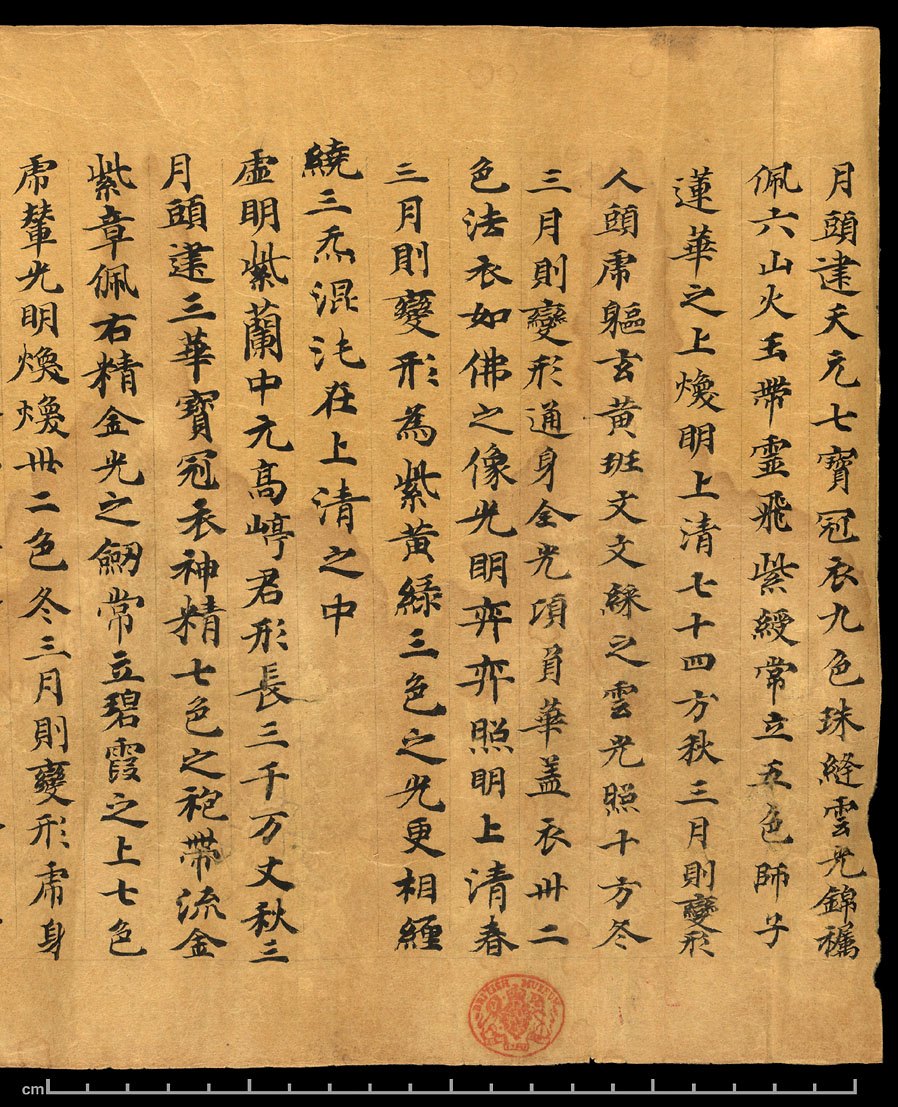 月頭建天元七寶冠衣九色珠縫雲光錦
佩六山火玉帶靈飛紫綬常立五色師子
蓮華之上煥明上清七十四方秋三月則變形
人頭虎軀玄黃班文文綵之雲光照十方冬
三月則變形通身全光項負華蓋衣卌二
色法衣如佛之像光明弈弈照明上清春
三月則變形為紫黃綠三色之光更相纏
繞三炁混沌在上清之中
虛明紫蘭中元高崢君形長三千万丈秋三
月頭建三華寶冠衣神精七色之袍帶流金
紫章佩右精金光之劒常立碧霞之上七色
虎輦光明煥煥卌二色冬三月則變形虎身
BRITISH MUSEUM
cm